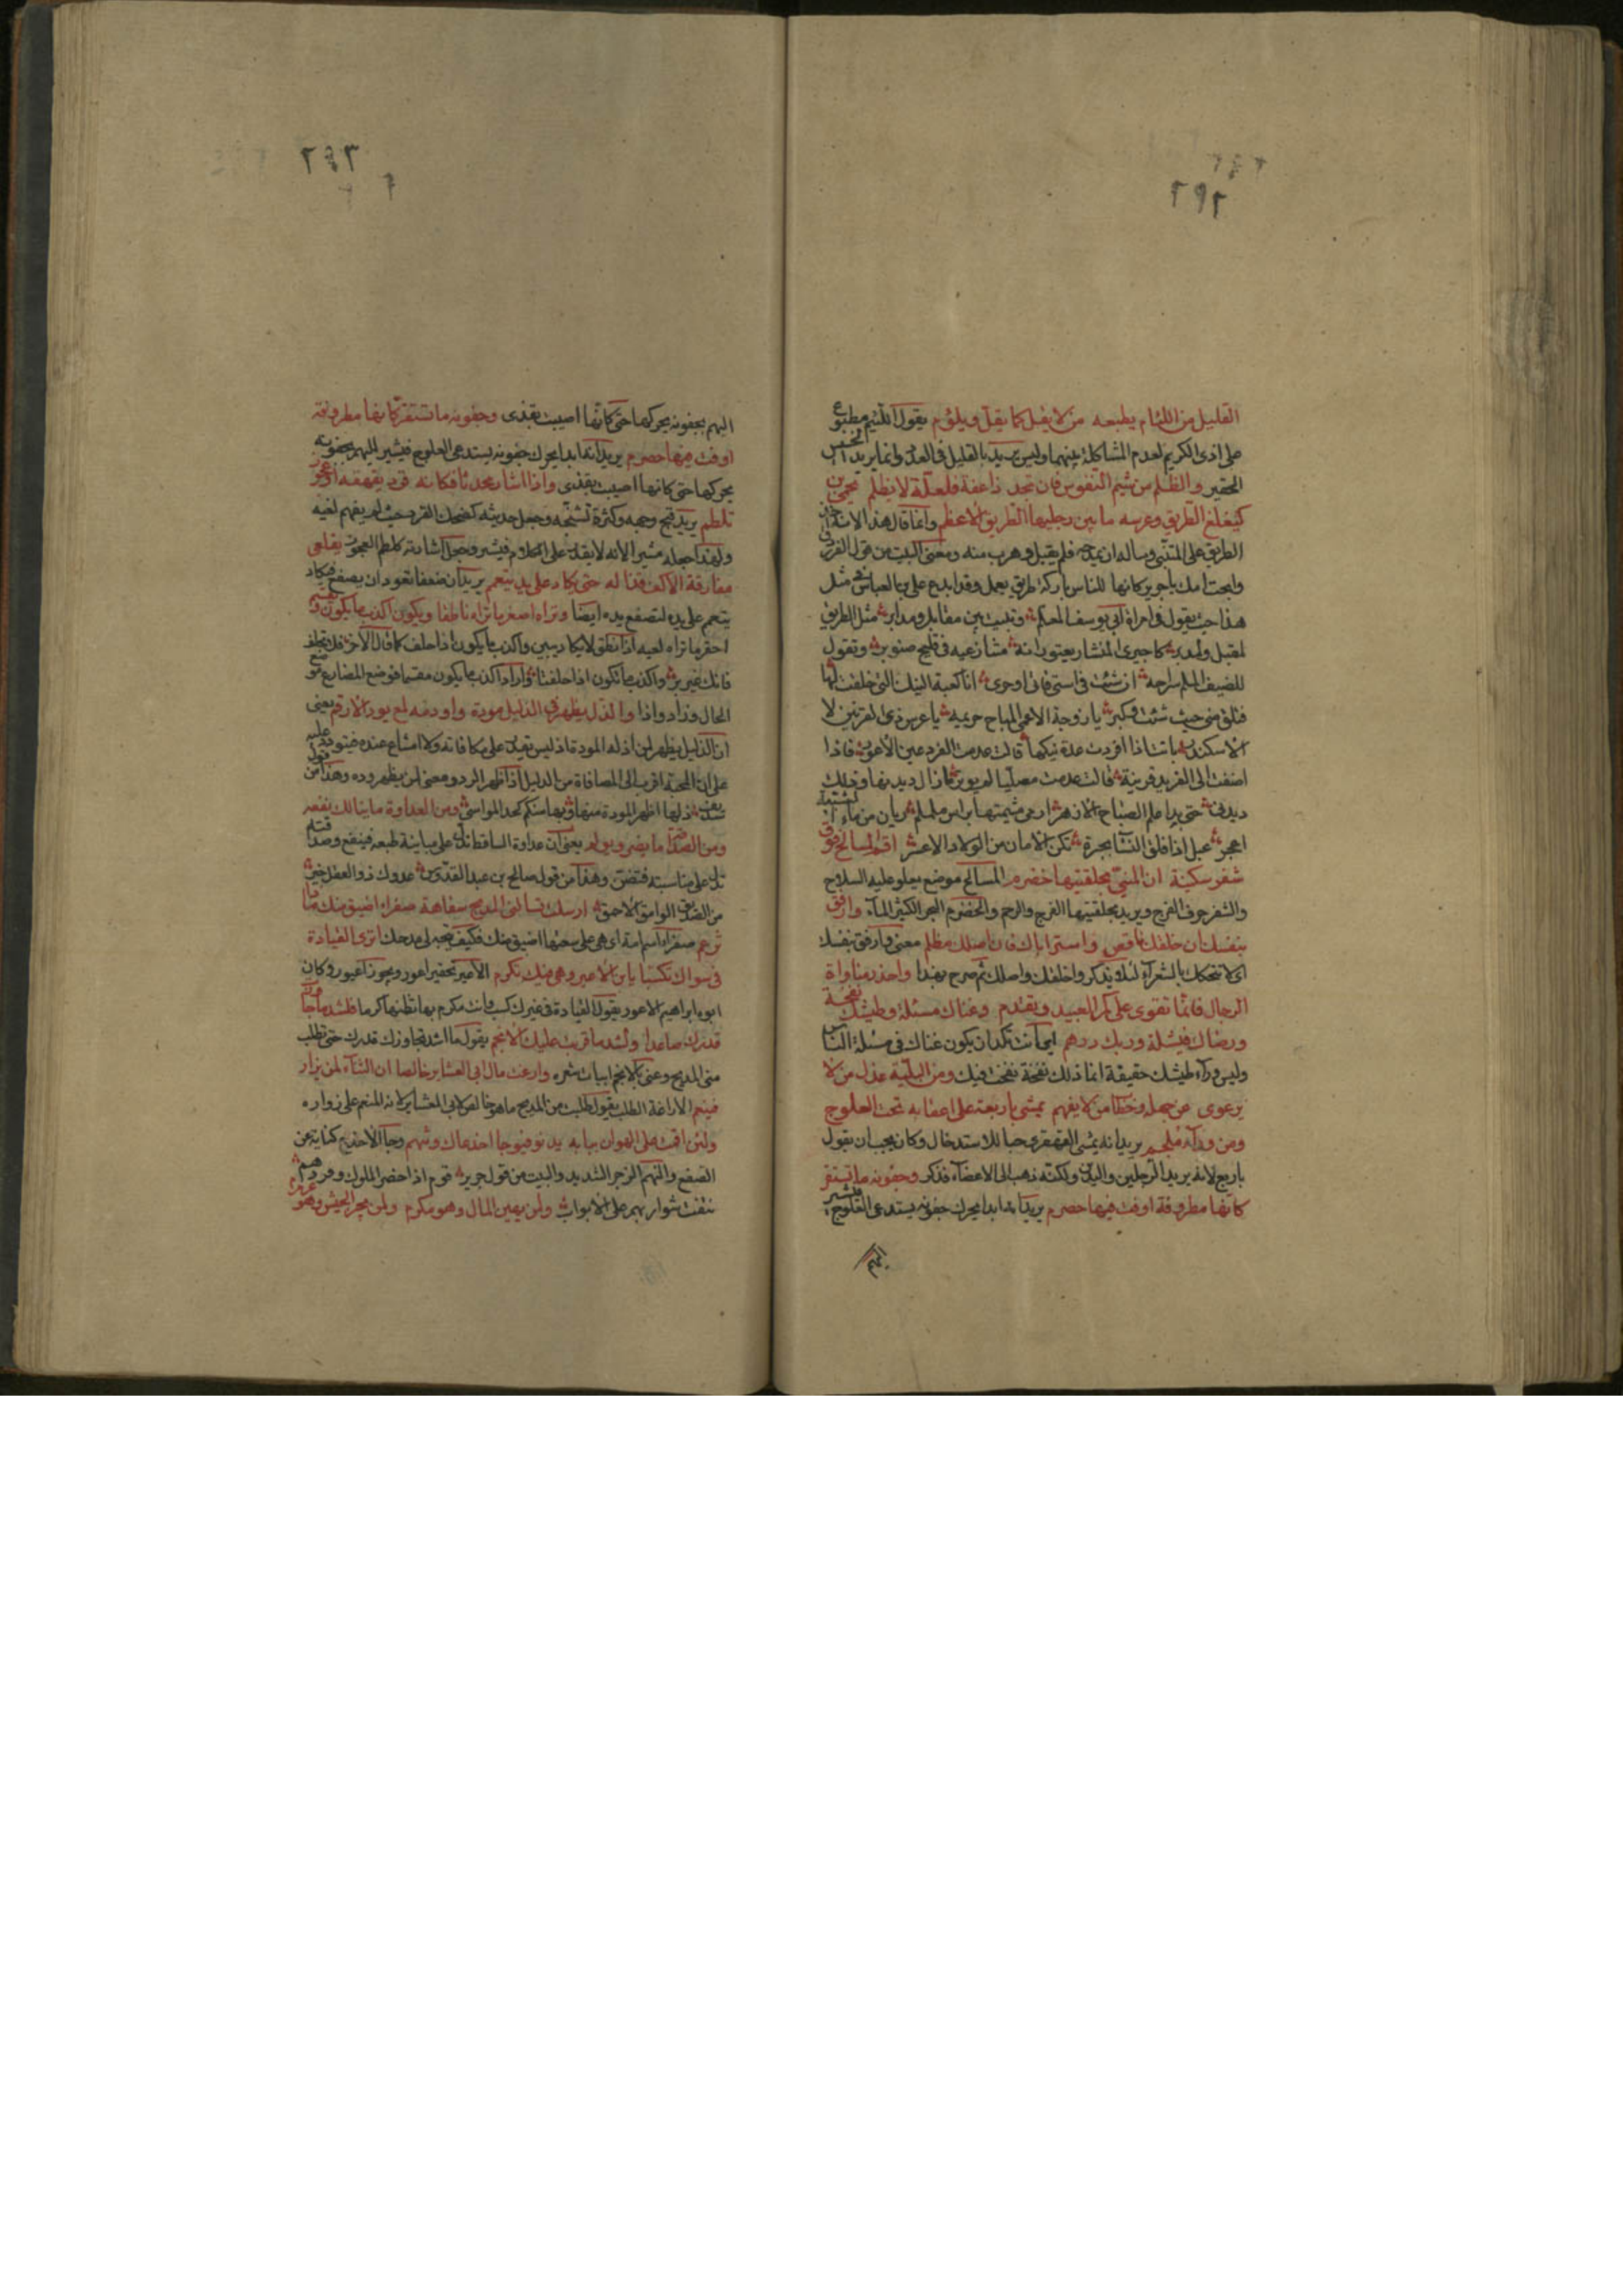 ٢٩٢
القليل من اللئام بطبعه من لا يقل كما يقل ويلؤم يقول اللئيم مطبوع
على اذى الكريم لعدم المشاكلة بينهما وليس يريد بالقليل في العدد وانما يريد الخسيس
الحقير والظلم من شيم النفوس فان تجد ذا عفة فلعلة لا يظلم يحمي بن
كيغلغ الطريق وعرسه ما بين رجليها الطريق الاعظم وانما قال هذا لانه
الطريق على المتنبي وساله ان يمدحه فلم يقبل وهرب منه ومعنى البيت من قول الفرزدق
وابحت امك يا جرير كانها للناس باركة طريق يعمل وقد ابدع علي بن العباس في مثل
هذا حيث يقول في امراة ابي يوسف المعلم وتبيت بين مقابل ومدابر مثل الطريق
لمقبل ولمدبر كاجيري المنشار يعتورانه متنازعيه في فليج صنوبر وتقول
للضيف الملم سراحه ان شئت في استي فاتي او حري انا كعبة النيك التي خلقت لها
فتلق مني حيث شئت وكبر يا زوجة الاعمى المباح حريمه يا عرس ذي القرنين لا
الاسكندر باتت اذا افردت عدة نيكها قالت عدمت الفرد عين الاعور فاذا
اضفت الى الفريد قرينة قالت عدمت مصليا لم يوتر ما زال ديدنها وذلك
ديدني حتى بدا علم الصباح الازهر ارمي مشيمتها براس ململم ريان من ماء
اعجر عبل اذا قلق النسا بحره تكن الامان من الولاد الاعسر اقم المسالح فوق
شفر سكينة ان المني بحلقتيها خضرم المسالح موضع يعلو عليه السلاح
والشفر حرف الفرج ويريد بحلقتيها الفرج والرحم والخضرم البحر الكثير الماء وارفق
بنفسك ان خلقك ناقص واستر اباك فان اصلك مظلم معنى وارفق بنفسك
اي لا تتحكك بالشعراء لئلا يذكروا خلقك واصلك ثم صرح بهذا واحذر مناواة
الرجال فانما تقوى على كمر العبيد وتقدم وغناك مسئلة وطيشك نفخة
ورضاك فيشلة وربك درهم اي انت تكدي ان يكون غناك في مسئلة الناس
وليس وراء طيشك حقيقة انما ذلك نفخة نفخت فيك ومن البلية عذل من لا
يرعوي عن جهله وخطاب من لا يفهم يمشي باربعة على اعقابه تحت العلوج
ومن وراء ملجم يريد انه يمشي القهقرى حبا للاستدخال وكان يجب ان يقول
باربع لانه يريد الرجلين واليدين ولكنه ذهب الى الاعضاء فذكر وجفونه ما تستقر
كانها مطروفة او فت فيها حصرم يريد انه ابدا يحرك جفونه يستدعي العلوج فيشير
اليهم
٢٩٣
اليهم بجفونه يحركها حتى كانها اصيبت بقذى وجفونه ما تستقر كانها مطروفة
او فت فيها حصرم يريد انه ابدا يحرك جفونه يستدعي العلوج فيشير اليهم بجفونه
يحركها حتى كانها اصيبت بقذى واذا اشار محدثا فكانه قرد يقهقه او عجوز
تلطم يريد قبح وجهه وكثرة تشنجه وجعل حديثه كضحك القرد حيث لم يفهم لعيه
ولهذا جعله مشيرا لانه لا يقدر على الكلام فيشير وجعل اشارته كلطم العجوز يقلى
مفارقة الاكف قذاله حتى يكاد على يد يتعمم يريد ان ضعفا تعود ان يصفع فيكاد
يتعمم على يده لتصفع يده ايضا وتراه اصغر ما تراه ناطقا ويكون اكذب ما يكون ويقسم
احقر ما تراه لعيه اذا نطق لا يكاد يبين واكذب ما يكون اذا حلف كما قال الاخر فلا تحلف
فانك غير بر واكذب ما تكون اذا حلفتا واراد اكذب ما يكون مقسما فوضع المضارع موضع
الحال وزاد واوا والذل يظهر في الذليل مودة واود منه لمن يود الارقم يعني
ان الذليل يظهر لمن اذله المودة اذ ليس يقدر على مكافاته ولا امتناع عنده فيتودد عليه
على ان الحية اقرب الى المصافاة من الذليل اذا ظهر الود ومعنى لمن يظهر وده وهذا من قول
ذلها اظهر المودة منها وبها منكم كحد المواسي ومن العداوة ما ينالك نفعه
ومن الصداقة ما يضر ويؤلم يعني ان عداوة الساقط تدل على مباينة طبعه فينفع وصداقته
تدل على مناسبته فتضر وهذا من قول صالح بن عبد القدوس عدوك ذو العقل خير
من الصديق الوامق الاحمق ارسلت تسالني المديح سفاهة صفراء اضيق منك ماذا
تزعم صفراء اسم امه اي هي على سعتها اضيق منك فكيف تجبرني مدحك اترى القيادة
في سواك تكسبا يا بن الاعير وهي فيك تكرم الاعير تحقير اعور ويجوز اعيور وكان
ابوه ابراهيم الاعور يقول القيادة في غيرك كسب وانت مكرم بها تظنها كرما فلشد ما جاوزت
قدرك صاعدا ولشد ما قربت عليك الانجم يقول ما اشد تجاوزك قدرك حتى تطلب
مني المديح وعنى بالانجم ابيات شعره وارغت مال ابي العشاير خالصا ان الثناء لمن يزار
فينعم الاراغة الطلب يقول طلبت من المديح ما هو خالص لابي العشاير لانه المنعم على زواره
ولمن اقمت على الهوان ببابه يدنو فيوجا اخدعاك وتنهم وجأ الاخدع كناية عن
الصفع والنهم الزجر الشديد والبيت من قول جرير قوم اذا حضر الملوك وفودهم
نتفت شواربهم على الابواب ولمن يهين المال وهو مكرم ولمن يجر الجيش وهو عرمرم